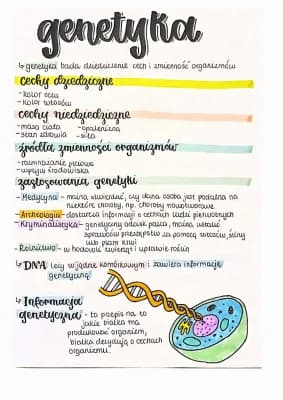 genetyka
↳ genetyka bada dziedziczenie cech i zmienność organizmów
cechy dziedziczne
- kolor oczu
- kolor włosów
cechy niedziedziczne
- masa ciała - opalenizna
- stan zdrowia - siła
źródła zmienności organizmów
- rozmnażanie płciowe
- wpływ środowiska
zastosowania genetyki
- Medycyna - można stwierdzić, czy dana osoba jest podatna na
niektóre choroby, np. choroby nowotworowe
- Archeologia - dostarcza informacji o cechach ludzi pierwotnych
- Kryminalistyka - genetyczny odcisk palca, można, ustalić
sprawców przestępstw za pomocą włosów, śliny
lub plam krwi
- Rolnictwo - w hodowli zwierząt i uprawie roślin
↳ DNA leży w jądrze komórkowym i zawiera informację
genetyczną
↳ Informacja
genetyczna - to przepis na to
jakie białka ma
produkować organizm,
białka decydują o cechach
organizmu.